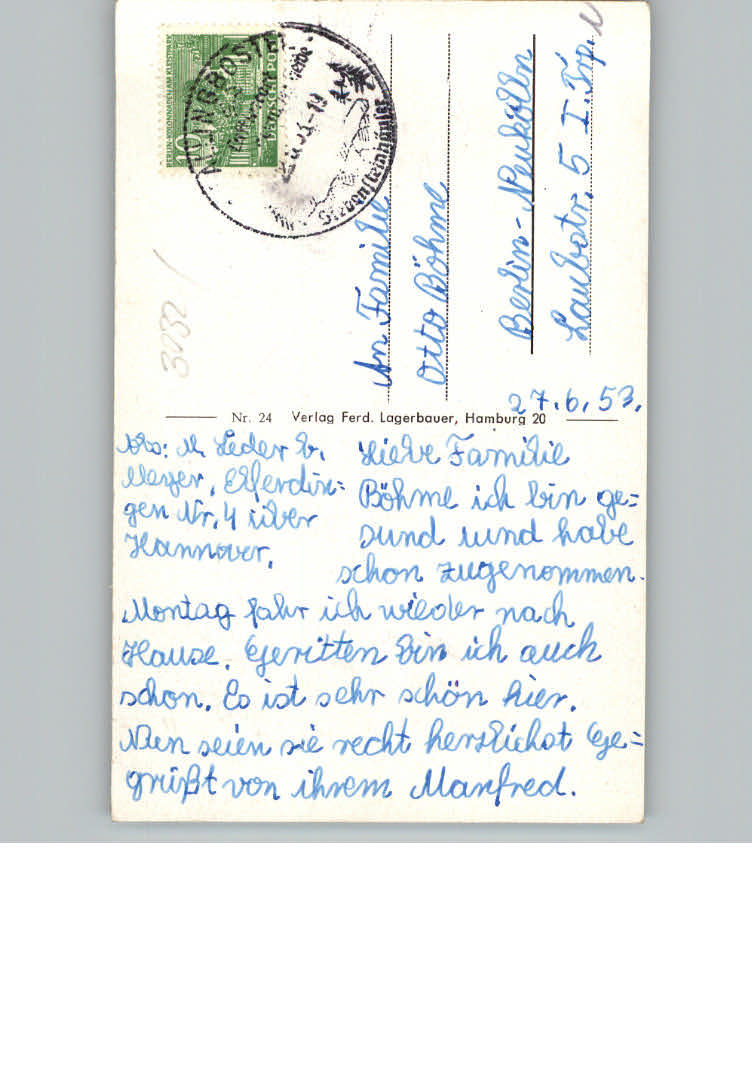 FALLINGBOSTEL
Siebensteinhäuser
DEUTSCHE POST
10
An Familie
Otto Böhme
Berlin-Neukölln
Laubstr. 5 I. Trp.
3032 /
27.6.53.
Nr. 24 Verlag Ferd. Lagerbauer, Hamburg 20
Abs: M. Leder b.
Meyer, Elferdin=
gen Nr. 4 über
Hannover.
Liebe Familie
Böhme ich bin ge=
sund und habe
schon zugenommen.
Montag fahr ich wieder nach
Hause. Geritten bin ich auch
schon. Es ist sehr schön hier.
Nun seien sie recht herzlichst Ge=
grüßt von ihrem Manfred.